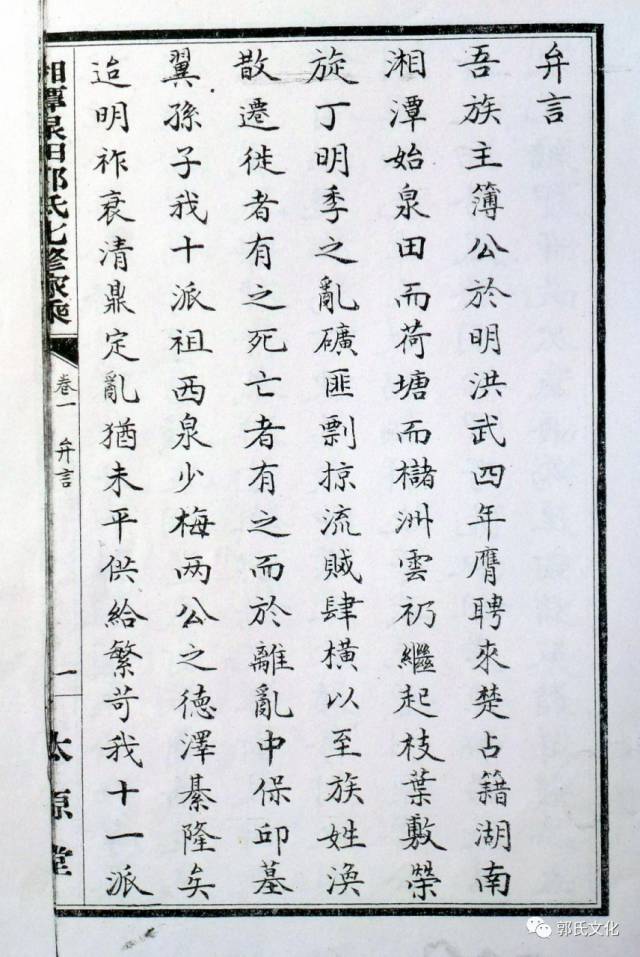 弁言
吾族主簿公於明洪武四年膺聘來楚占籍湖南
湘潭始泉田而荷塘而櫧洲雲礽繼起枝葉敷榮
旋丁明季之亂礦匪剽掠流賊肆橫以至族姓渙
散遷徙者有之死亡者有之而於離亂中保邱墓
翼孫子我十派祖西泉少梅两公之德澤綦隆矣
迨明祚衰清鼎定亂猶未平供給繁苛我十一派
湘潭泉田郭氏七修家乘
卷一 弁言
一
太原堂
郭氏文化